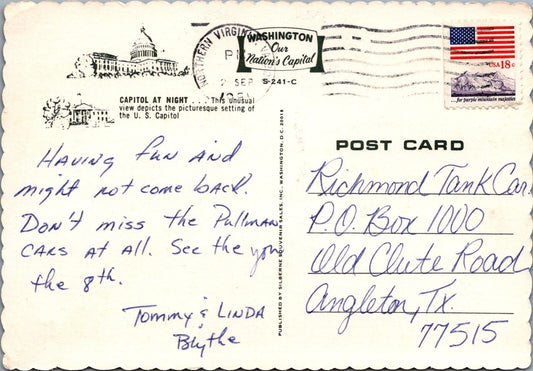 WASHINGTON
Our
Nation's Capital
S-241-C
NORTHERN VIRGINIA
PM
2 SEP
USA 18c
for purple mountain majesties
CAPITOL AT NIGHT . . . This unusual
view depicts the picturesque setting of
the U. S. Capitol
POST CARD
Having fun and
might not come back.
Don't miss the Pullman
cars at all. See the you
the 8th.
Tommy & LINDA
Blythe
PUBLISHED BY SILBERNE SOUVENIR SALES, INC. WASHINGTON, D.C. 20018
Richmond Tank Car
P.O. Box 1000
Old Clute Road
Angleton, Tx.
77515